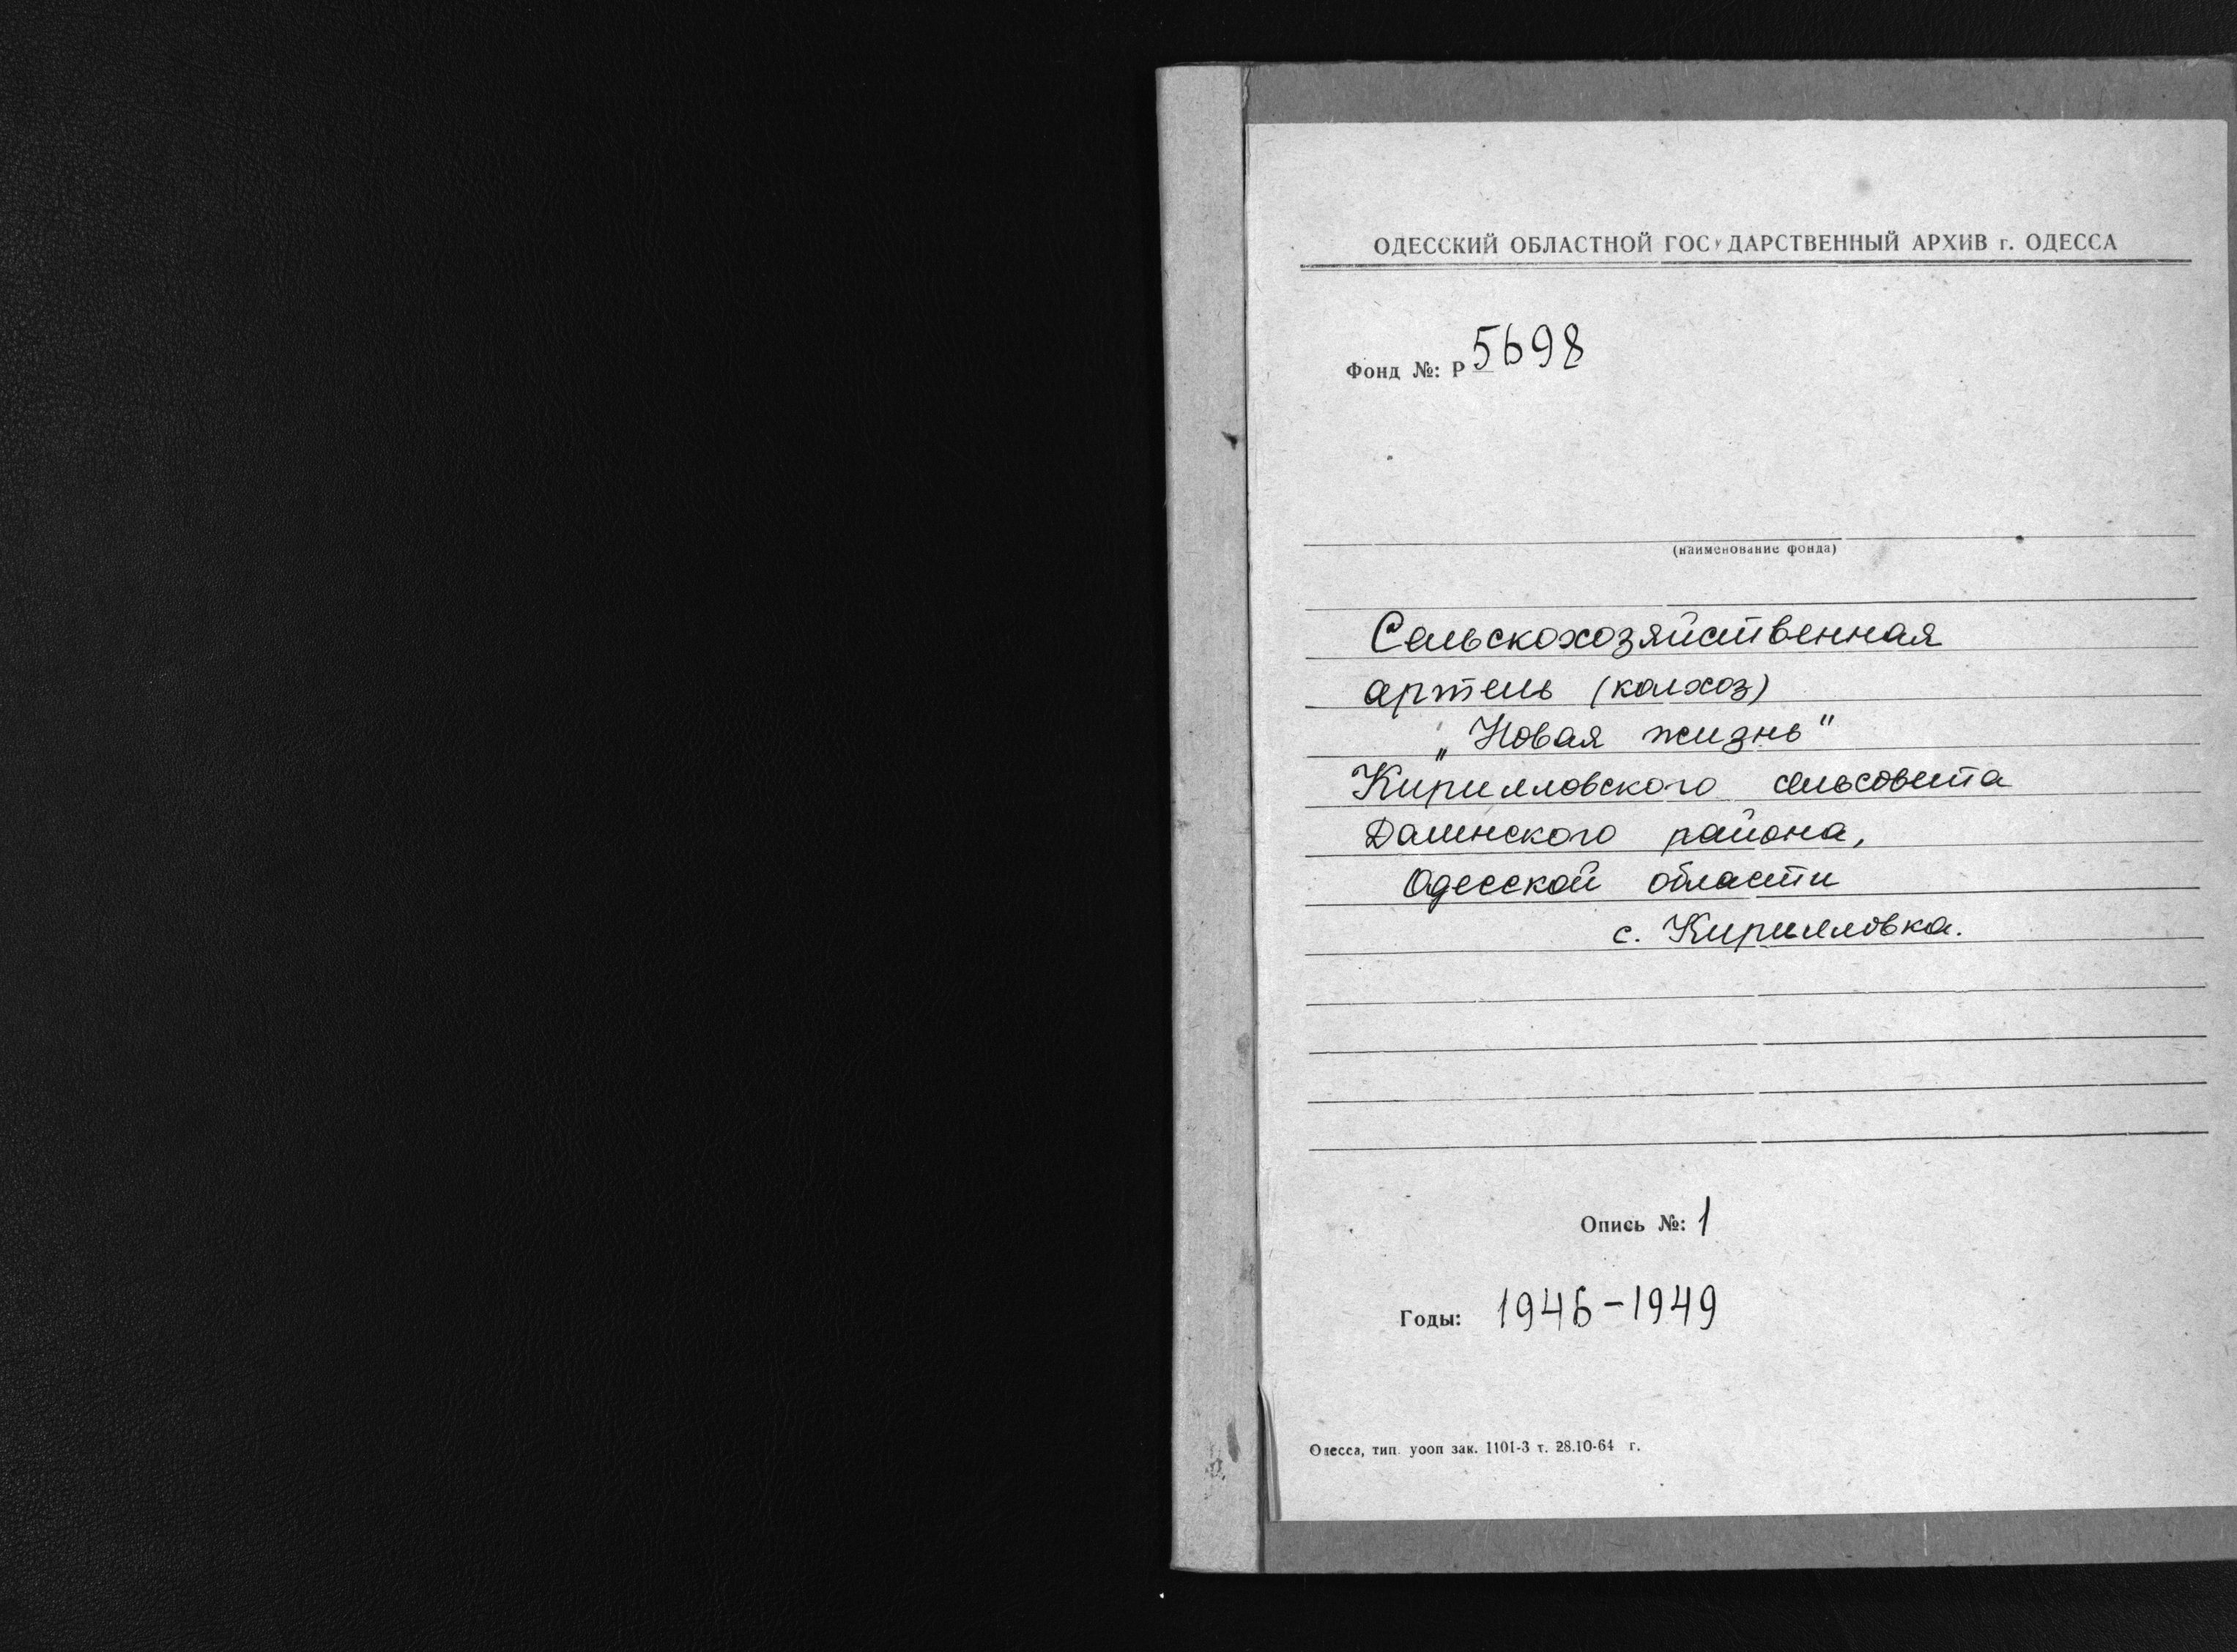 ОДЕССКИЙ ОБЛАСТНОЙ ГОСУДАРСТВЕННЫЙ АРХИВ г. ОДЕССА
Фонд №: Р 5698
(наименование фонда)
Сельскохозяйственная
артель (колхоз)
„Новая жизнь"
Кирилловского сельсовета
Далинского района,
Одесской области
с. Кирилловка.
Опись №: 1
Годы: 1946-1949
Одесса, тип. уооп зак. 1101-3 т. 28.10-64 г.